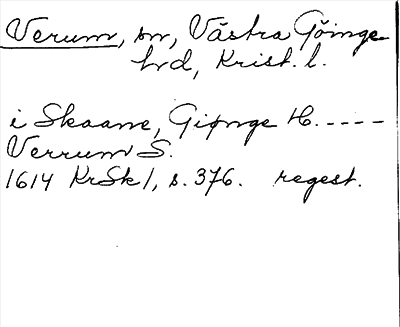 Verum, sn, Västra Göinge
hrd, Krist. l.
i Skaane, Giønge H. ----
Verrum S.
1614 KrSk 1, s. 376. regest.